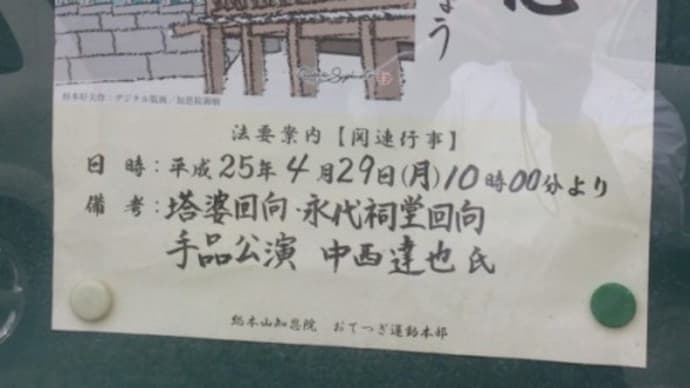 う
杉本好夫作：デジタル版画／知恩院御廟
法要案内【関連行事】
日 時：平成25年4月29日(月)10時00分より
備 考：塔婆回向・永代祠堂回向
手品公演 中西達也氏
総本山知恩院 おてつぎ運動本部